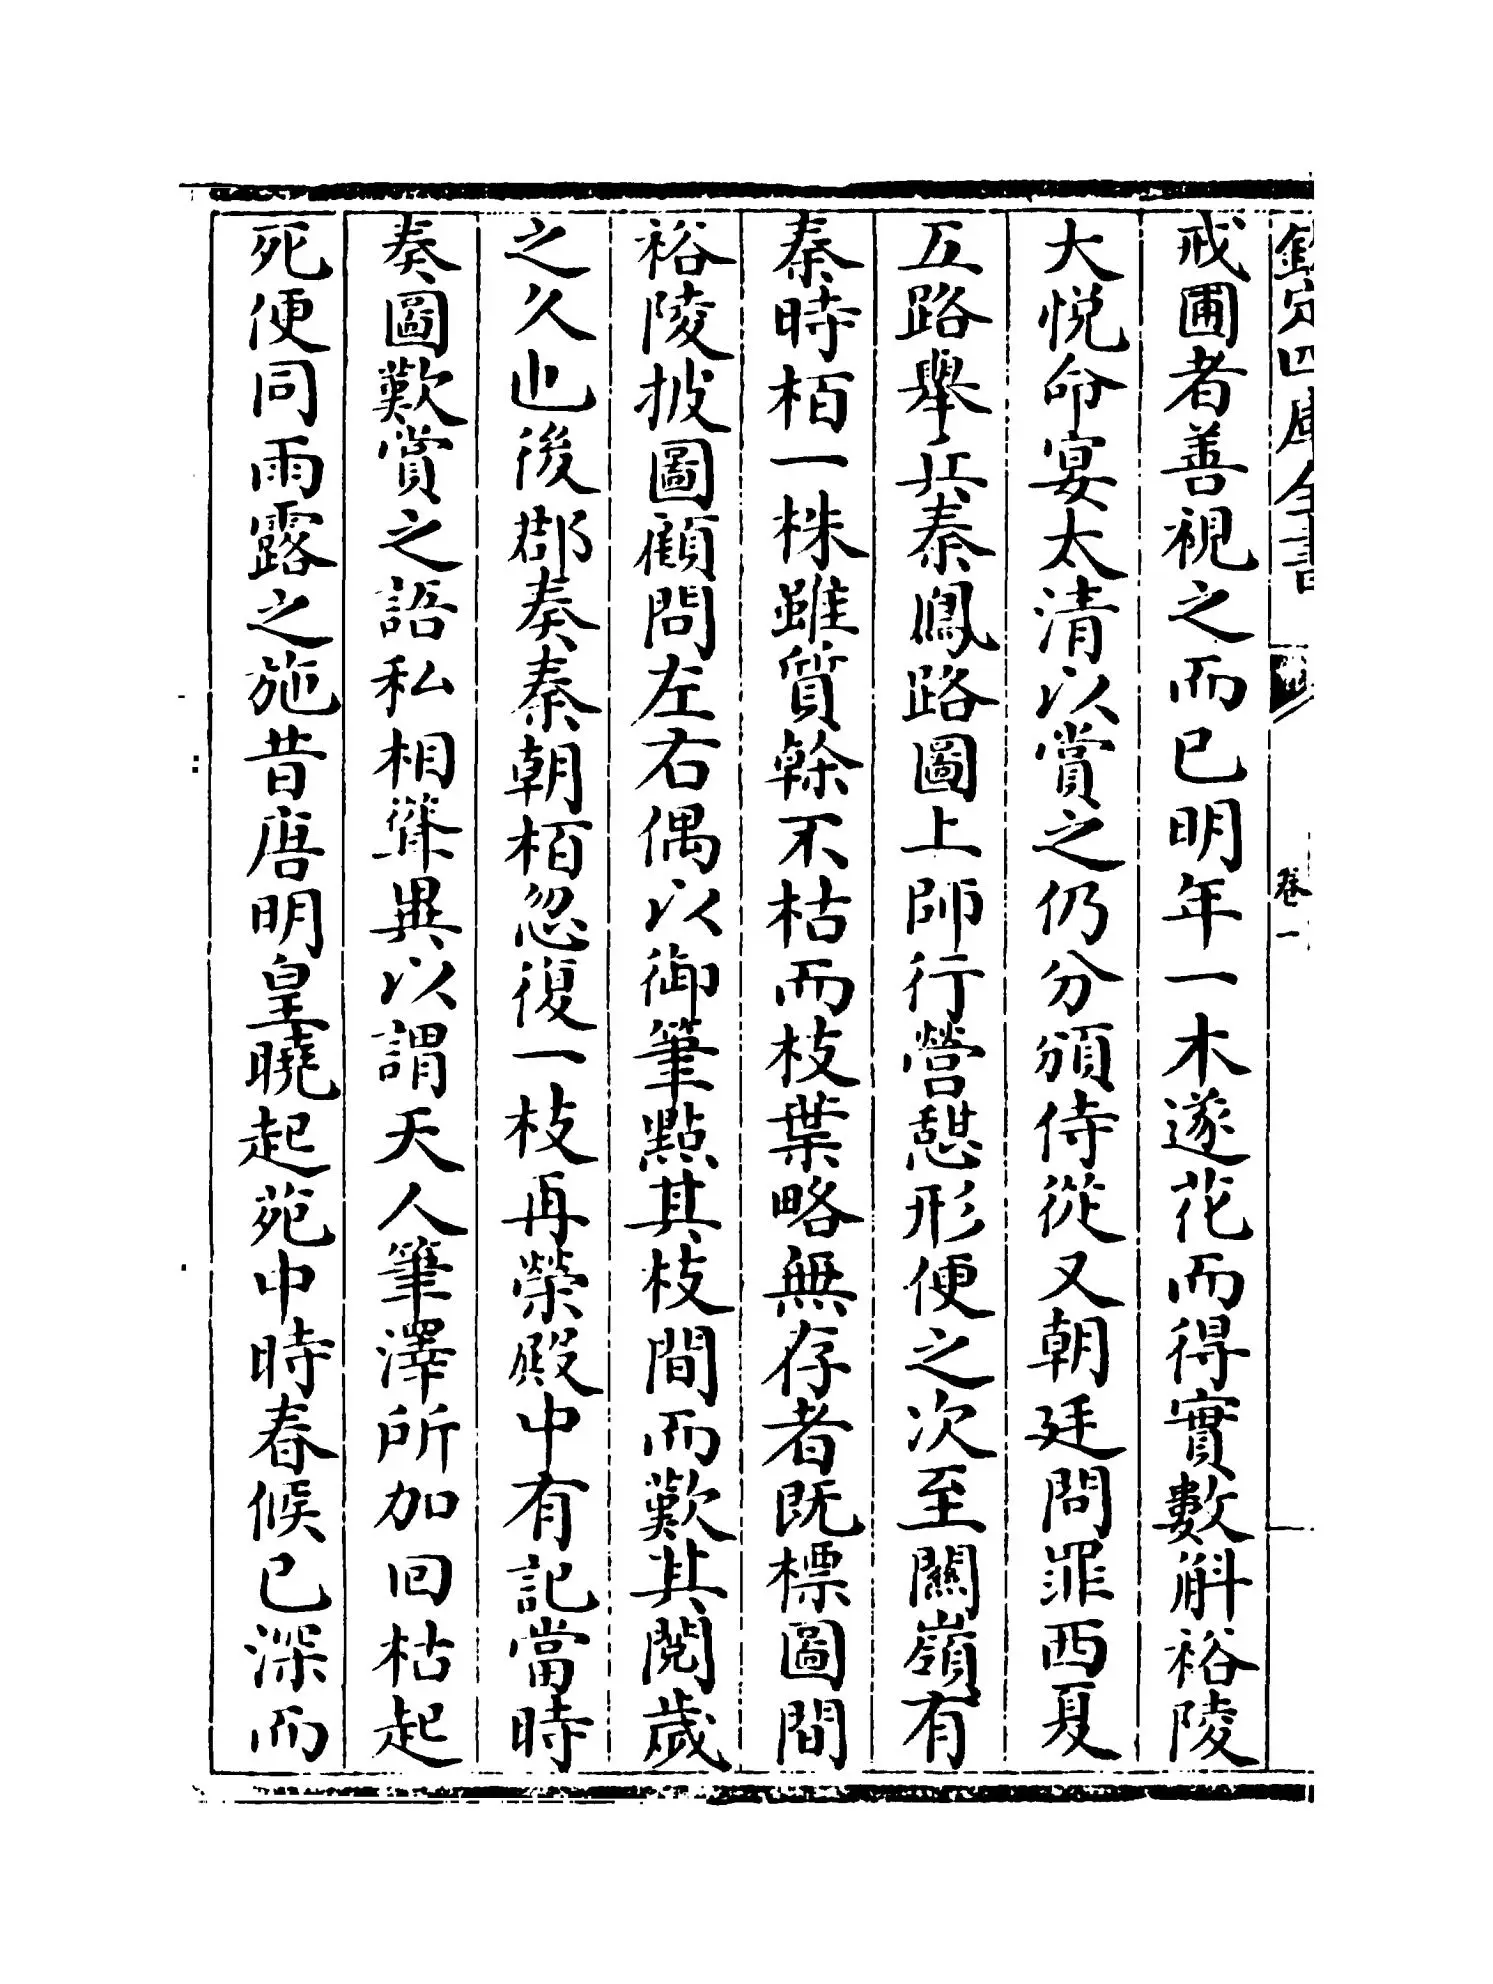 欽定四庫全書
卷一
戒圃者善視之而已明年一木遂花而得實數斛裕陵
大悦命宴太清以賞之仍分頒侍從又朝廷問罪西夏
五路舉兵秦鳳路圖上師行營憇形便之次至關嶺有
秦時栢一株雖質榦不枯而枝葉略無存者既標圖間
裕陵披圖顧問左右偶以御筆點其枝間而歎其閱歳
之久也後郡奏秦朝栢忽復一枝再榮殿中有記當時
奏圖歎賞之語私相聳異以謂天人筆澤所加回枯起
死便同雨露之施昔唐明皇曉起苑中時春候已深而